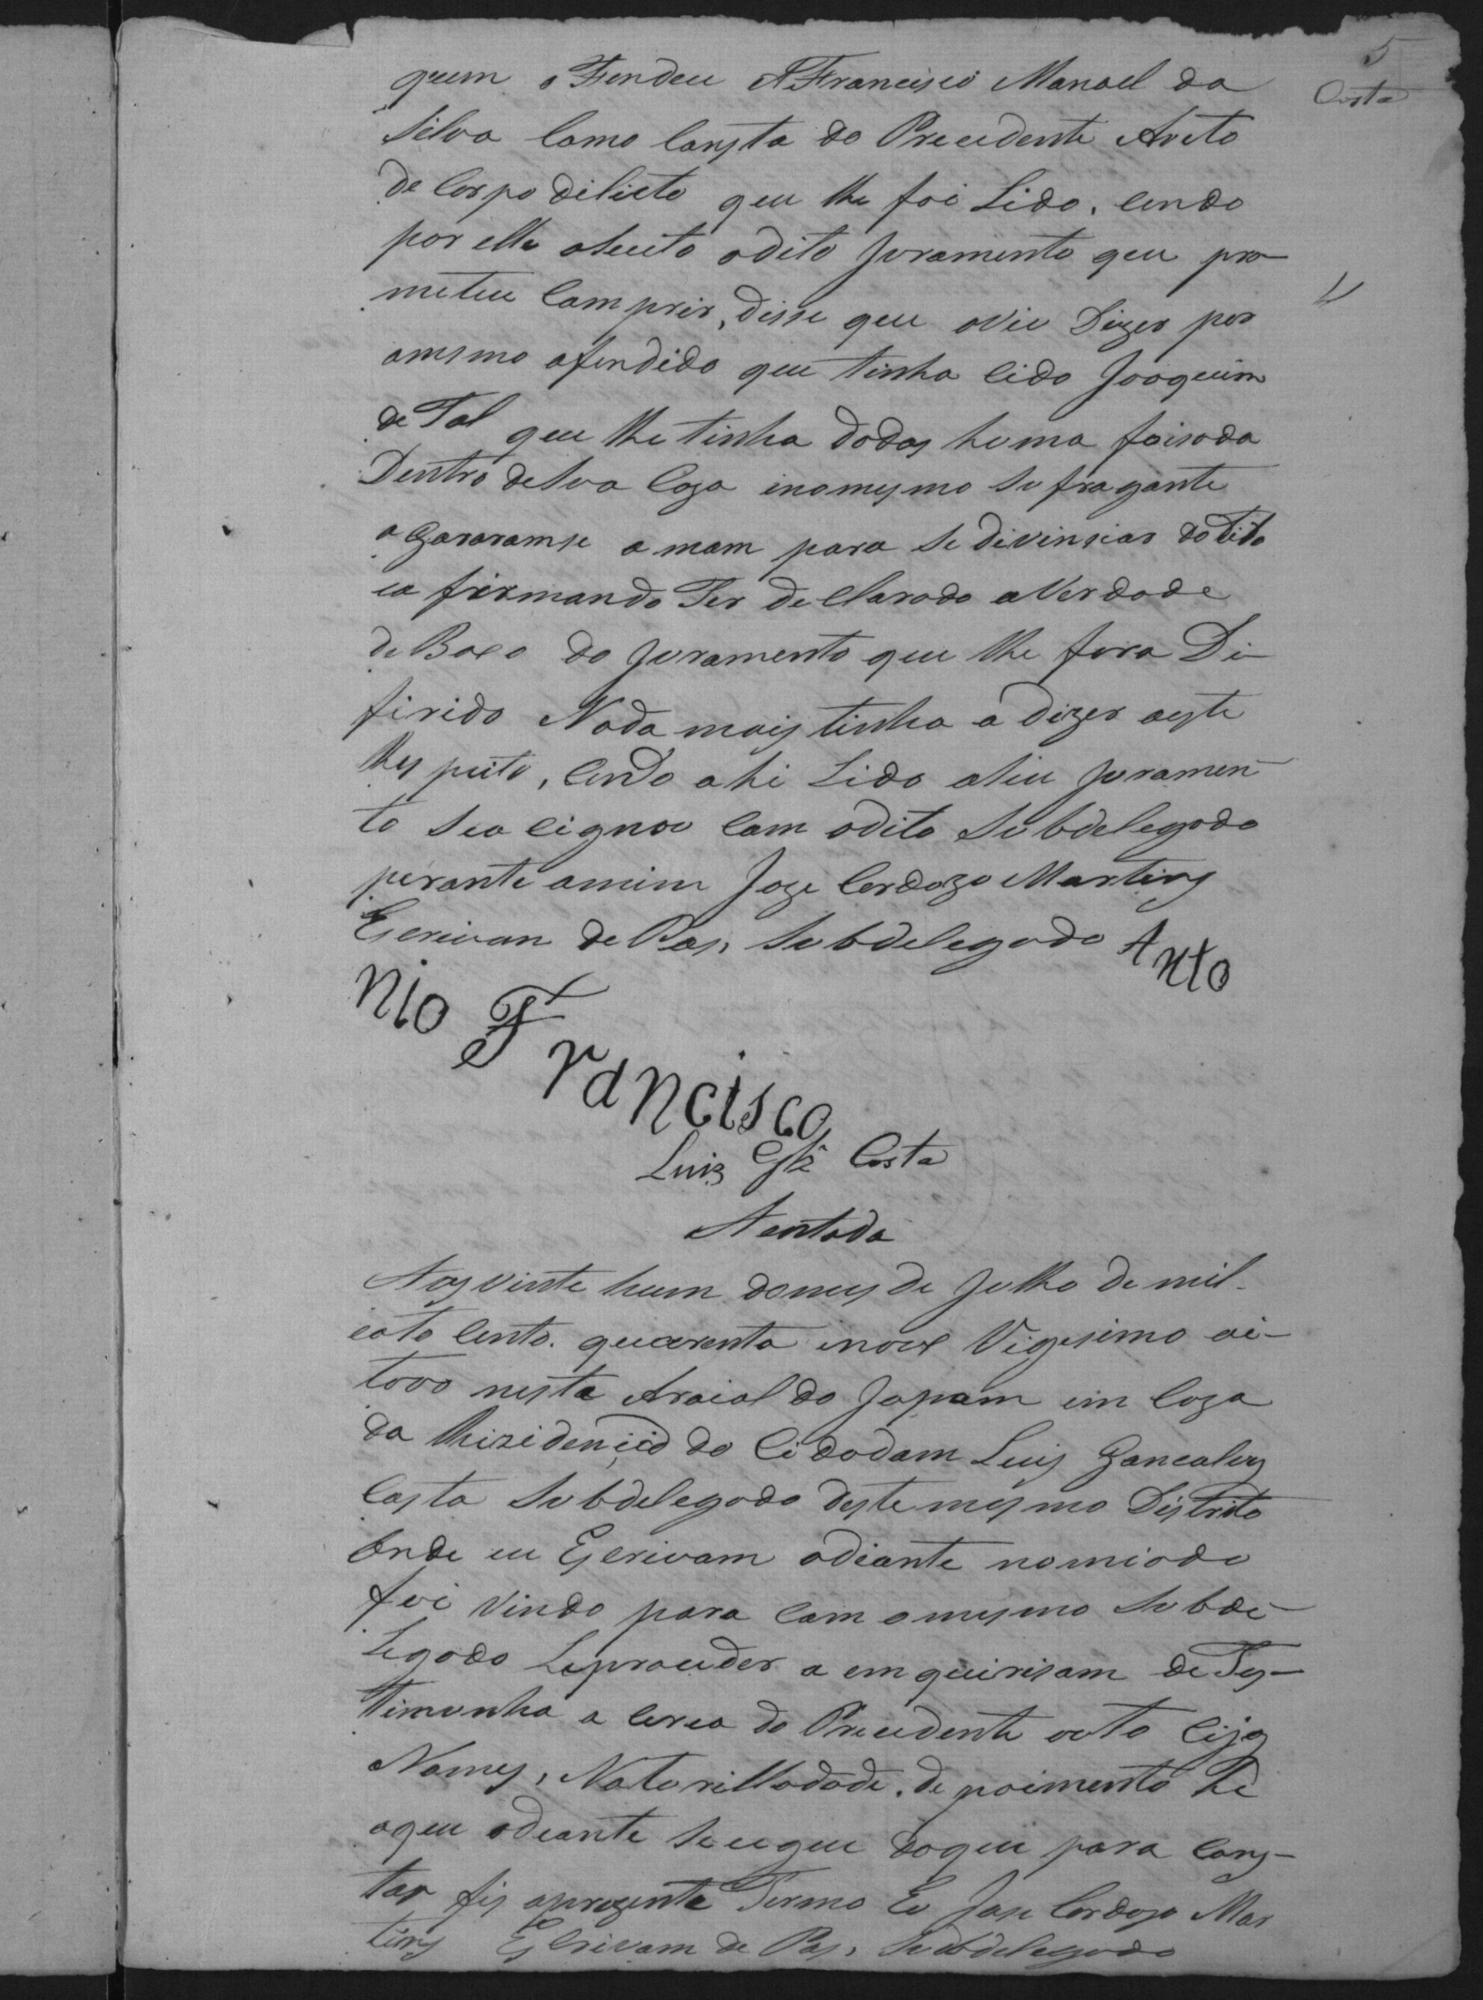 5
Costa
quem o Fendeu A Francisco Manoel da
Silva Como Consta do Precedente Aucto
de Corpo delicto que lhe foi Lido, cendo
por elle aseito odito Juramento que pro-
meteu Comprir, disse que ovio Dizer por
omesmo ofendido que tinha cido Joaquim
de Tal que lhe tinha dodas huma foisada
Dentro de Sua Caza inomesmo Su fragante
agararamse a mam para se divinsiar do tido
ea firmando Ter decllarado aVerdade
de Baxo do Juramento que lhe fora De-
firido Nada mais tinha a Dizer aeste
Respeito, Cendo ahi Lido oSeu Juramen-
to Seacignou Com odito Subdelegado
perante amim Joze Cardozo Martins
Escrivan de Pas, Subdelegado Anto
nio Francisco
Luiz Glz Costa
Acentada
Aos vinte hum domes de Julho de mil
oito Cento quarenta inove Vigesimo oi-
tavo nesta Araial do Japam em Caza
da Rizidencia do Cidadam Luis Goncalves
Costa Subdelegado deste mesmo Distrito
Onde eu Escrivam adiante nomiado
fui vindo para Com omesmo Subde-
Legado Seproceder a emquirisam de Tes-
timunha a Cerca do Precedente outo Cijos
Nomes, Naturillodade, de poimento he
oque adeante Seegue doque para Cons-
tar fis aprezente Termo Eu Joze Cardozo Mar
tins Escrivam de Pas, Subdelegado